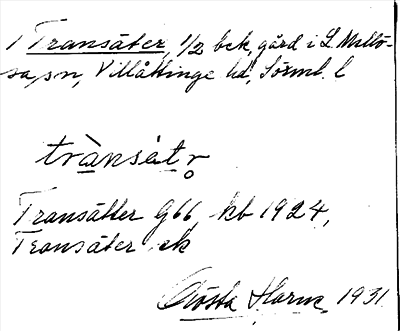 1 Transäter, 1/2 bck, gård i L. Mellö-
sa sn, Villåttinge hd, Sörml. l
trànsä̀t r̥
Transätter G66, kb 1924,
Transäter ek
Gösta Harne 1931